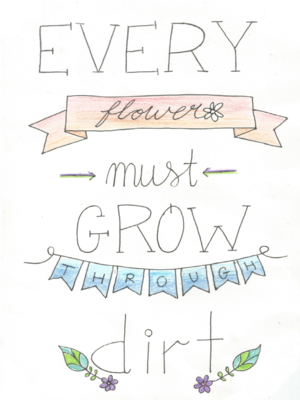 EVERY
flower
must
GROW
THROUGH
dirt